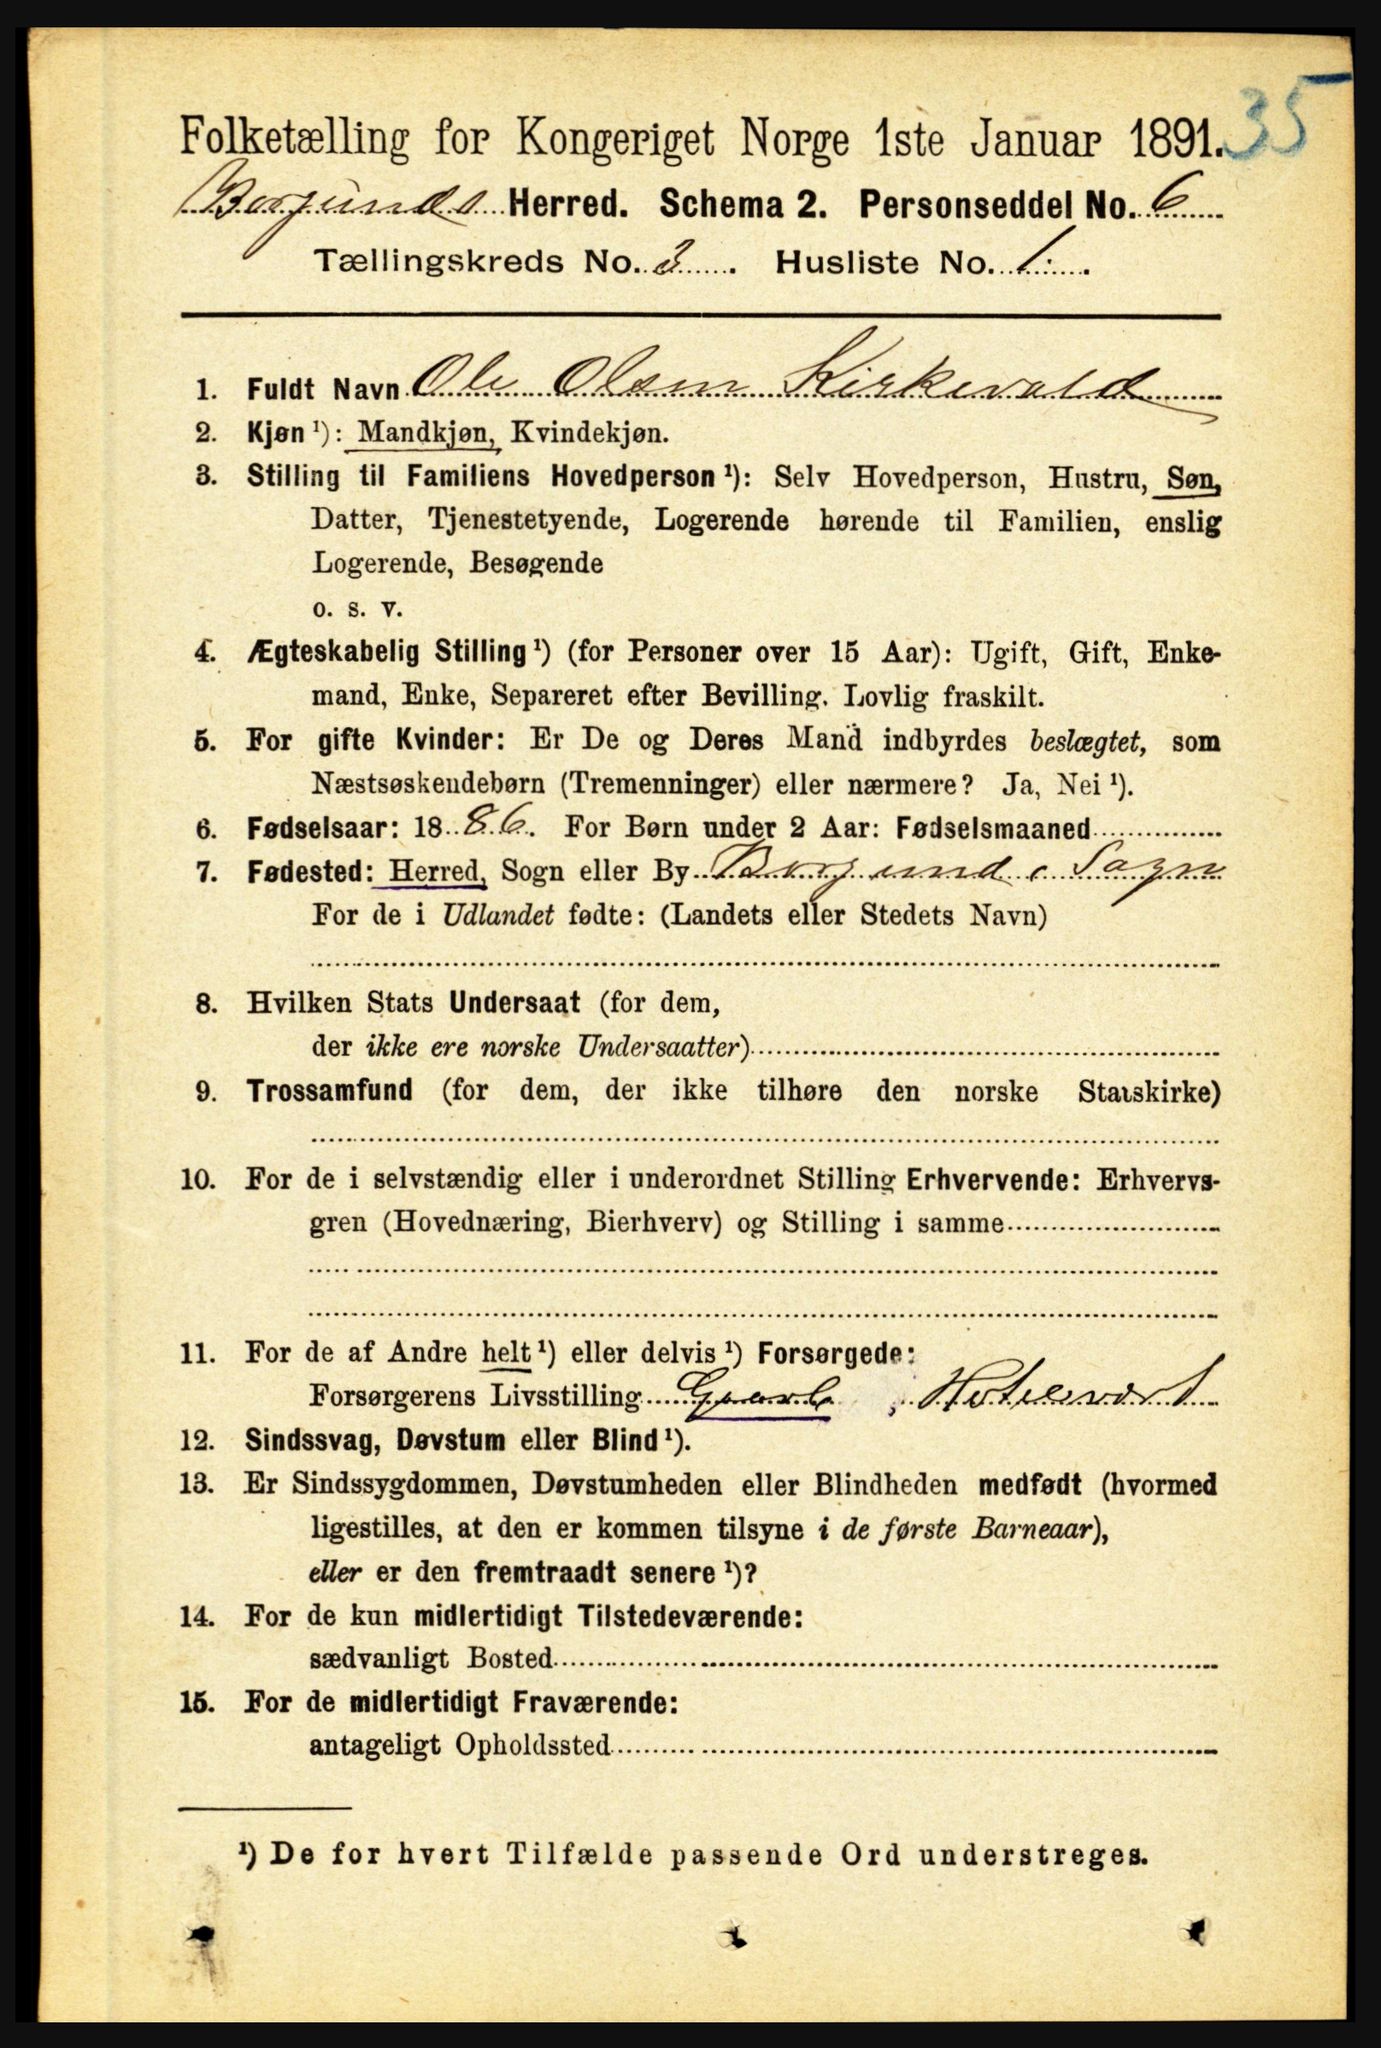 35
Folketælling for Kongeriget Norge 1ste Januar 1891.
Borgunds Herred. Schema 2. Personseddel No. 6
Tællingskreds No. 3. Husliste No. 1.
1. Fuldt Navn Ole Olsen Kirkevold
2. Kjøn ¹): Mandkjøn, Kvindekjøn.
3. Stilling til Familiens Hovedperson ¹): Selv Hovedperson, Hustru, Søn,
Datter, Tjenestetyende, Logerende hørende til Familien, enslig
Logerende, Besøgende
o. s. v.
4. Ægteskabelig Stilling ¹) (for Personer over 15 Aar): Ugift, Gift, Enke-
mand, Enke, Separeret efter Bevilling. Lovlig fraskilt.
5. For gifte Kvinder: Er De og Deres Mand indbyrdes beslægtet, som
Næstsøskendebørn (Tremenninger) eller nærmere? Ja, Nei ¹).
6. Fødselsaar: 1886. For Børn under 2 Aar: Fødselsmaaned
7. Fødested: Herred, Sogn eller By Borgund i Sogn
For de i Udlandet fødte: (Landets eller Stedets Navn)
8. Hvilken Stats Undersaat (for dem,
der ikke ere norske Undersaatter)
9. Trossamfund (for dem, der ikke tilhøre den norske Statskirke)
10. For de i selvstændig eller i underordnet Stilling Erhvervende: Erhvervs-
gren (Hovednæring, Bierhverv) og Stilling i samme
11. For de af Andre helt ¹) eller delvis ¹) Forsørgede:
Forsørgerens Livsstilling Gaarb , Hotelvært
12. Sindssvag, Døvstum eller Blind ¹).
13. Er Sindssygdommen, Døvstumheden eller Blindheden medfødt (hvormed
ligestilles, at den er kommen tilsyne i de første Barneaar),
eller er den fremtraadt senere ¹)?
14. For de kun midlertidigt Tilstedeværende:
sædvanligt Bosted
15. For de midlertidigt Fraværende:
antageligt Opholdssted
¹) De for hvert Tilfælde passende Ord understreges.